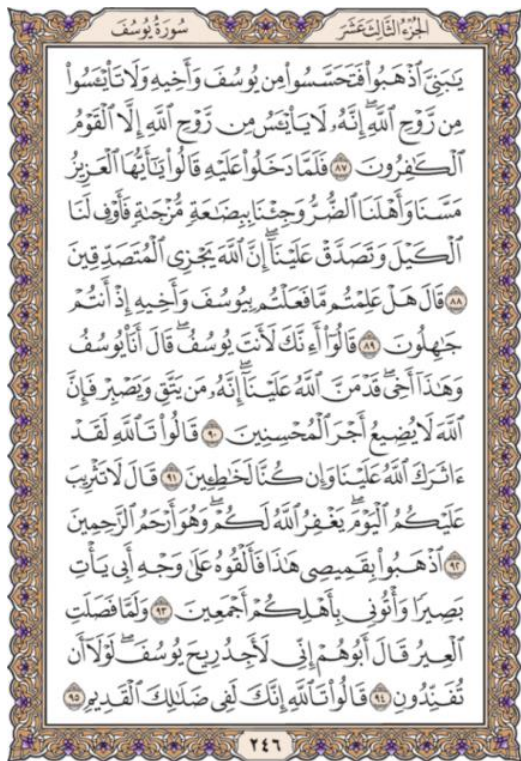 الجُزْءُ الثَّالِثَ عَشَرَ
سُورَةُ يُوسُفَ
يَٰبَنِىَّ ٱذْهَبُوا۟ فَتَحَسَّسُوا۟ مِن يُوسُفَ وَأَخِيهِ وَلَا تَا۟يْـَٔسُوا۟
مِن رَّوْحِ ٱللَّهِۖ إِنَّهُۥ لَا يَا۟يْـَٔسُ مِن رَّوْحِ ٱللَّهِ إِلَّا ٱلْقَوْمُ
ٱلْكَٰفِرُونَ ٨٧ فَلَمَّا دَخَلُوا۟ عَلَيْهِ قَالُوا۟ يَٰٓأَيُّهَا ٱلْعَزِيزُ
مَسَّنَا وَأَهْلَنَا ٱلضُّرُّ وَجِئْنَا بِبِضَٰعَةٍ مُّزْجَىٰةٍ فَأَوْفِ لَنَا
ٱلْكَيْلَ وَتَصَدَّقْ عَلَيْنَآۖ إِنَّ ٱللَّهَ يَجْزِى ٱلْمُتَصَدِّقِينَ
٨٨ قَالَ هَلْ عَلِمْتُم مَّا فَعَلْتُم بِيُوسُفَ وَأَخِيهِ إِذْ أَنتُمْ
جَٰهِلُونَ ٨٩ قَالُوٓا۟ أَءِنَّكَ لَأَنتَ يُوسُفُۖ قَالَ أَنَا۠ يُوسُفُ
وَهَٰذَآ أَخِىۖ قَدْ مَنَّ ٱللَّهُ عَلَيْنَآۖ إِنَّهُۥ مَن يَتَّقِ وَيَصْبِرْ فَإِنَّ
ٱللَّهَ لَا يُضِيعُ أَجْرَ ٱلْمُحْسِنِينَ ٩٠ قَالُوا۟ تَٱللَّهِ لَقَدْ
ءَاثَرَكَ ٱللَّهُ عَلَيْنَا وَإِن كُنَّا لَخَٰطِـِٔينَ ٩١ قَالَ لَا تَثْرِيبَ
عَلَيْكُمُ ٱلْيَوْمَۖ يَغْفِرُ ٱللَّهُ لَكُمْۖ وَهُوَ أَرْحَمُ ٱلرَّٰحِمِينَ
٩٢ ٱذْهَبُوا۟ بِقَمِيصِى هَٰذَا فَأَلْقُوهُ عَلَىٰ وَجْهِ أَبِى يَأْتِ
بَصِيرًا وَأْتُونِى بِأَهْلِكُمْ أَجْمَعِينَ ٩٣ وَلَمَّا فَصَلَتِ
ٱلْعِيرُ قَالَ أَبُوهُمْ إِنِّى لَأَجِدُ رِيحَ يُوسُفَۖ لَوْلَآ أَن
تُفَنِّدُونِ ٩٤ قَالُوا۟ تَٱللَّهِ إِنَّكَ لَفِى ضَلَٰلِكَ ٱلْقَدِيمِ ٩٥
٢٤٦